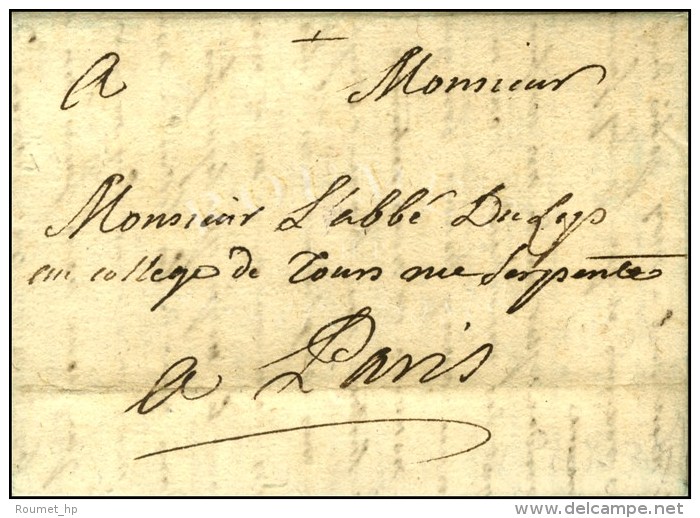 A Monsieur
Monsieur L'abbé Dulys
au college de Tours rue Serpente
a Paris
Roumet_hp
delcampe.net